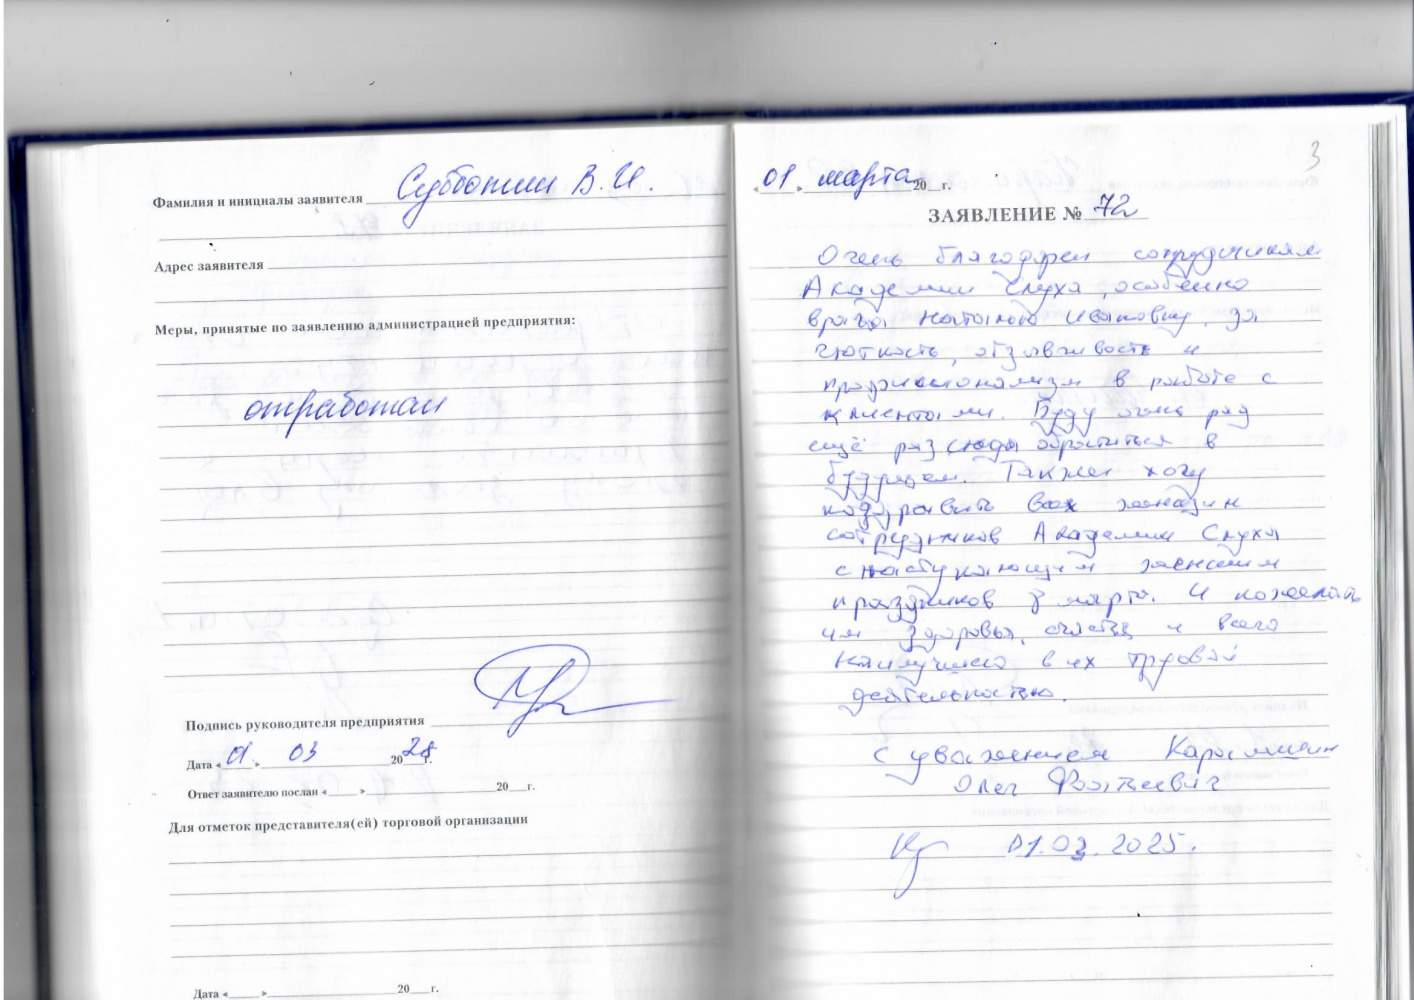 Фамилия и инициалы заявителя Субботин В. И.
Адрес заявителя
Меры, принятые по заявлению администрацией предприятия:
отработан
Подпись руководителя предприятия
Дата « 01 » 03 20 г.
Ответ заявителю послан «___» 20__г.
Для отметок представителя(ей) торговой организации
Дата «___» 20__г.
3
« 01 » марта 20__г.
ЗАЯВЛЕНИЕ № 72
Очень благодарен сотрудникам
Академии Слуха, особенно
врача Наталью Ивановну, за
чуткость, отзывчивость и
профессионализм в работе с
клиентами. Буду очень рад
ещё раз сюда обратиться в
будущем. Также хочу
поздравить всех женщин
сотрудников Академии Слуха
с наступающим женским
праздников 8 марта. И пожелать
им здоровья, счастья и всего
наилучшего в их трудовой
деятельностью.
С уважением
Олег
01.03.2025.